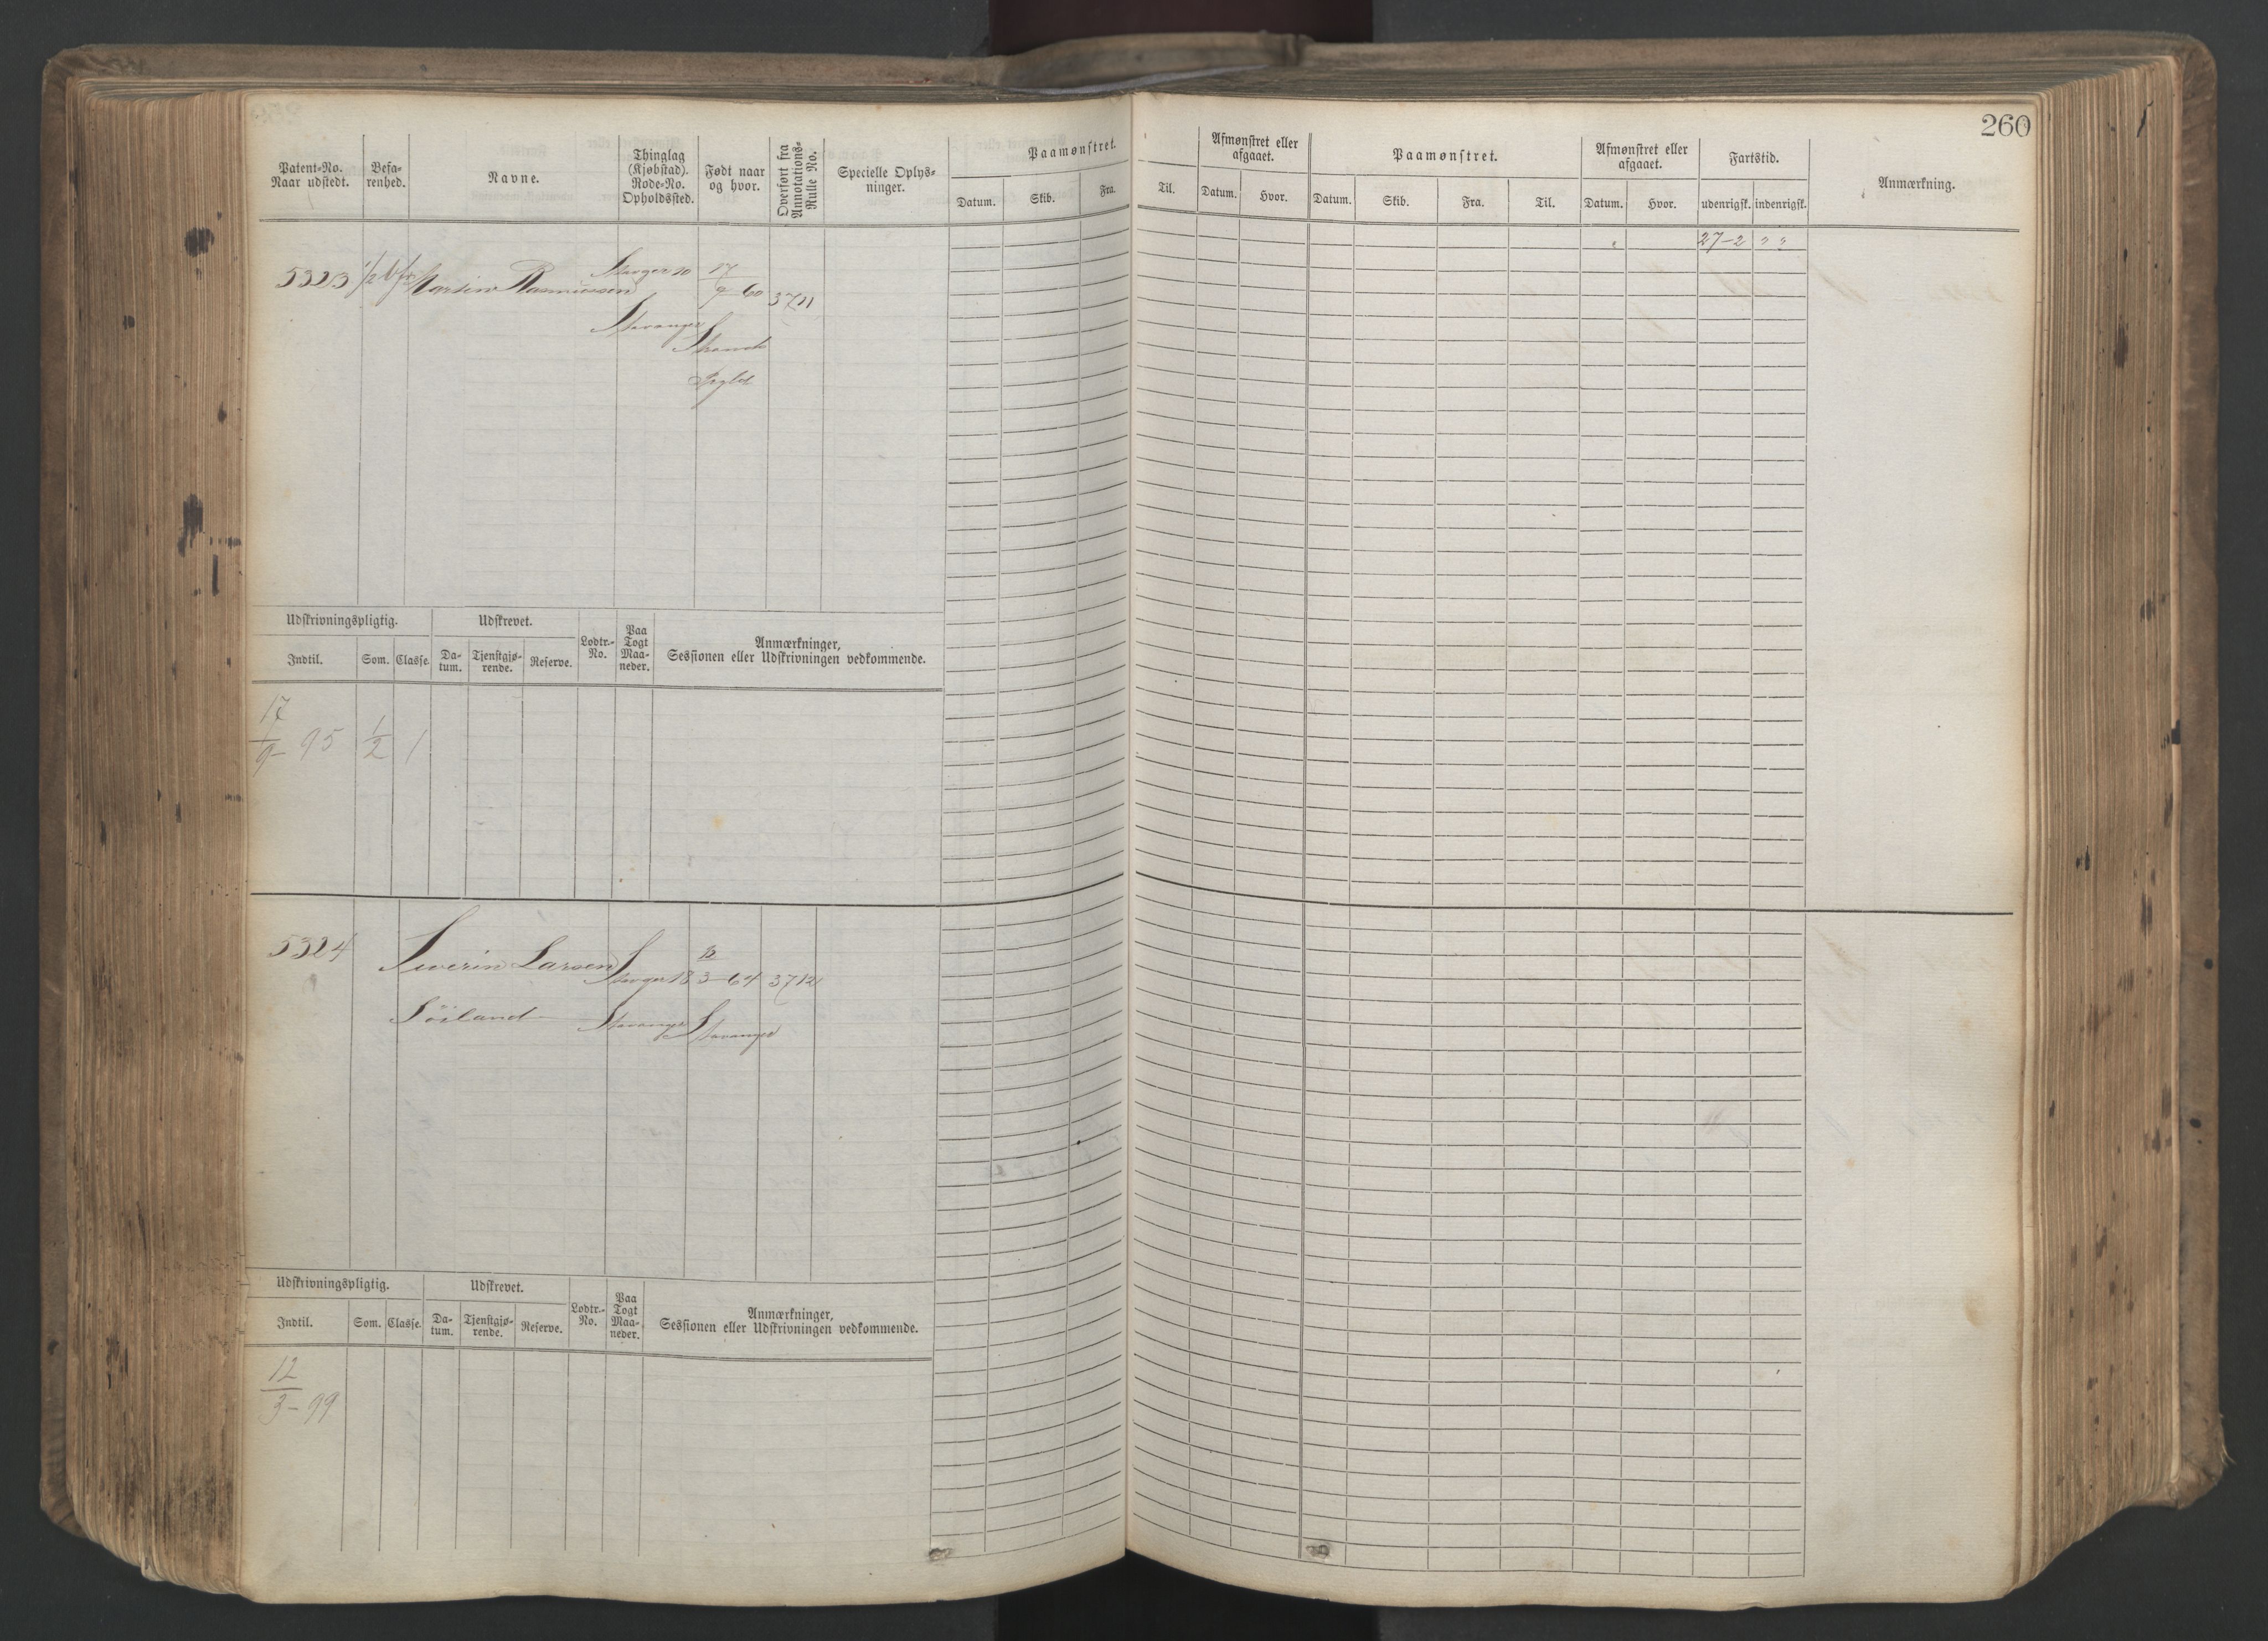 260
Patent-No. Naar udstedt.
Befa-
renhed.
Navne.
Thinglag
(Kjøbstad).
Rode-No.
Opholdssted.
Født naar
og hvor.
Overført fra
Annotations-
Rulle No.
Specielle Oplys-
ninger.
Paamønstret.
Datum. Skib. Fra. Til.
Afmønstret eller
afgaaet.
Datum. Hvor.
Paamønstret.
Datum. Skib. Fra. Til.
Afmønstret eller
afgaaet.
Datum. Hvor.
Fartstid.
udenrigsk. indenrigsk.
Anmærkning.
27-2 " "
5323 1/2 Rasmussen
17/9 60 3711
Stavanger
Strand
Udskrivningspligtig. Udskrevet. Lodtr.-
No. Paa
Togt
Maa-
neder. Anmærkninger,
Sessionen eller Udskrivningen vedkommende.
Indtil. Som. Classe. Da-
tum. Tjenstgjø-
rende. Reserve.
17/9-95 1/2 1
5324 Severin Larsen 18 12/3-64 3712
Söiland Stavanger Stavanger
Udskrivningspligtig. Udskrevet. Lodtr.-
No. Paa
Togt
Maa-
neder. Anmærkninger,
Sessionen eller Udskrivningen vedkommende.
Indtil. Som. Classe. Da-
tum. Tjenstgjø-
rende. Reserve.
12/3-99